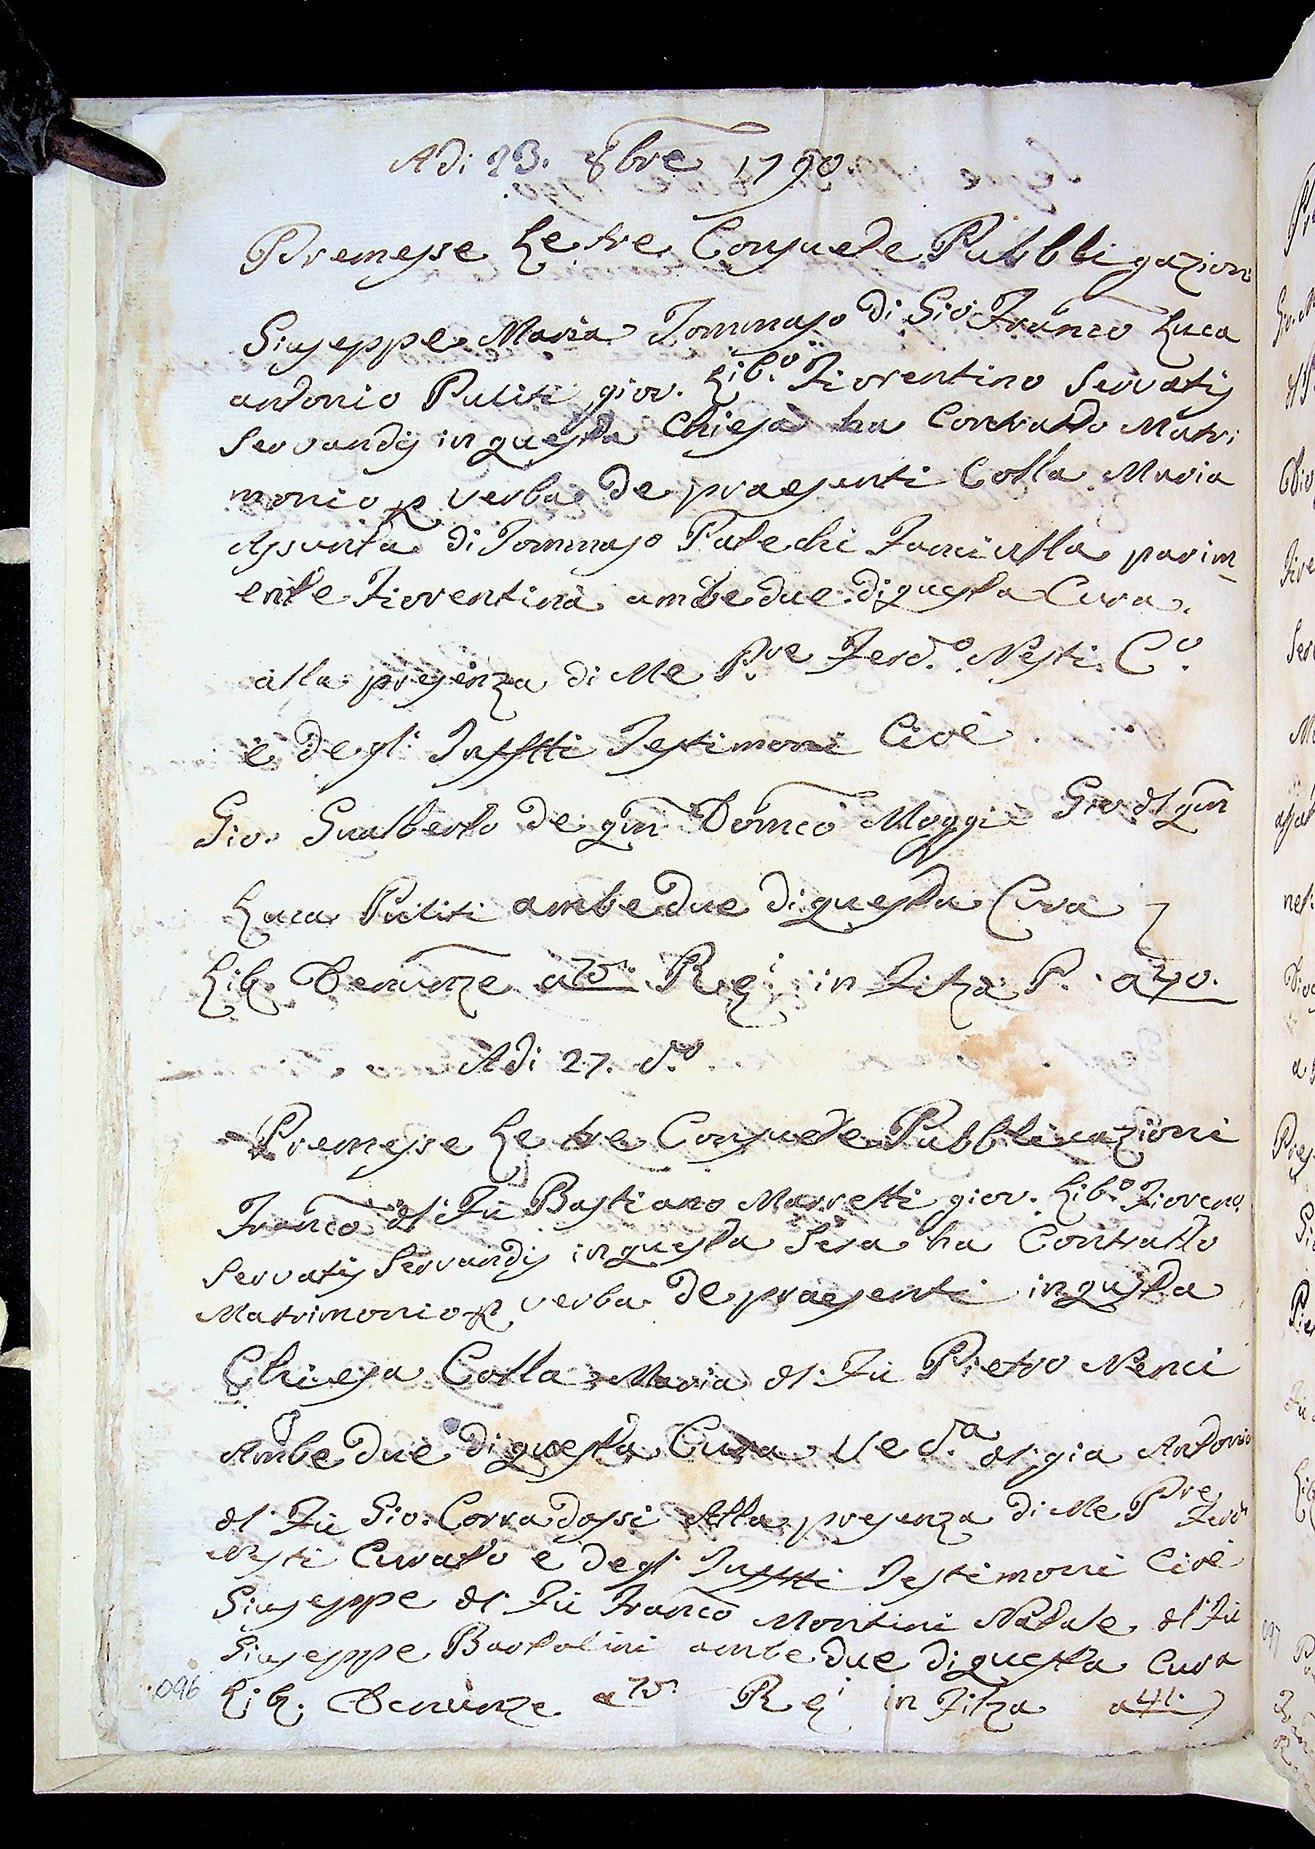 Adi 23. 8bre 1790.
Premesse Le tre Consuete Pubbligazioni
Giuseppe Maria Tommaso di Gio. Franco Luca
antonio Puliti giov. Lib.o Fiorentino Servatis
Servandis in questa Chiesa ha Contratto Matri
monio p verba de praesenti Colla Maria
Assunta di Tommaso Fanciulla parim
ente Fiorentina ambedue di questa Cura.
alla presenza di Me P.re Ferd.o Nesti C.o
e degl' Infftti Testimoni Cioè
Gio. Gualberto de qm Domco Moggi Gio. dl qm
Luca Puliti ambedue di questa Cura
Lib. Denunze a 75. R in Filza P. a 40.
Adi 27. d.o
Premesse Le tre Consuete Pubblicazioni
Franco dl Fù Bastiano Marretti giov. Lib.o Fioreno.
Servatis Servandis in questa Sera ha Contratto
Matrimonio p verba de praesenti in questa
Chiesa Colla Maria dl Fù Pietro Nenci
Ambedue di questa Cura Ved.a dl gia Antonio
dl Fù Gio. Corradossi Alla presenza di Me P.re Ferd.o
Nesti Curato e degl' Infftti Testimoni Cioè
Giuseppe dl Fù Franco Montini Natale dl Fù
Giuseppe Bartolini ambedue di questa Cura
Lib. Denunze a 75. R in Filza a 41.
096